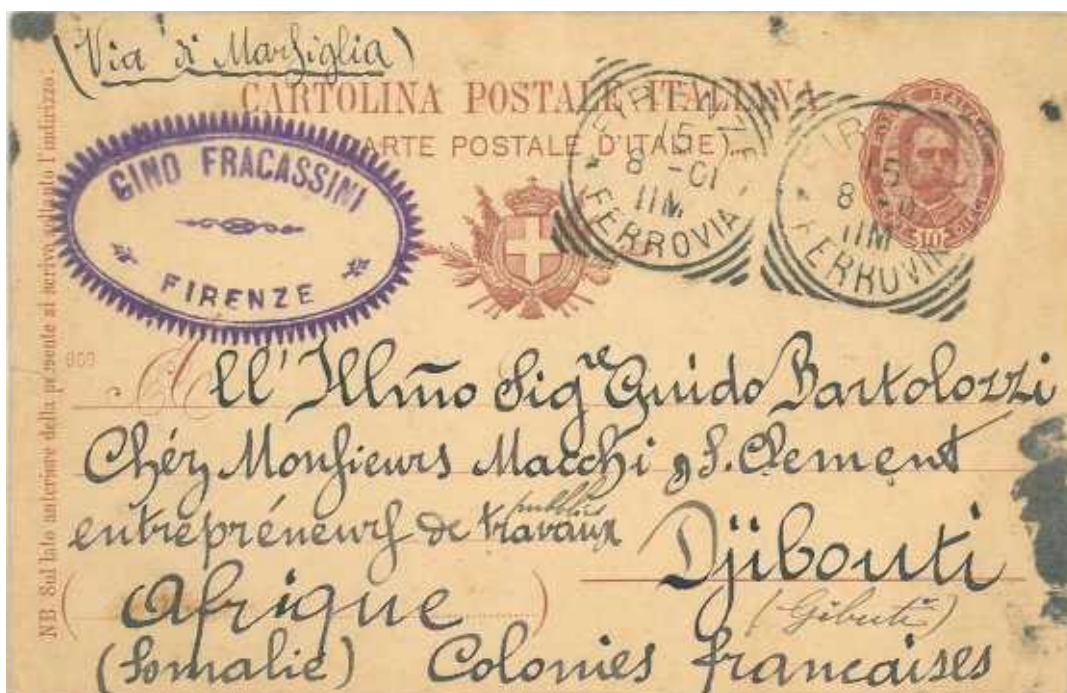 (Via di Marsiglia)
CARTOLINA POSTALE ITALIANA
(CARTE POSTALE D'ITALIE)
GINO FRACASSINI
FIRENZE
FIRENZE
15
8 - 01
11M
FERROVIA
FIRENZE
15
8
11M
FERROVIA
10
NB Sul lato anteriore della presente si scrive soltanto l'indirizzo.
All' Illmo Sigre Guido Bartolozzi
Chéz Monsieurs Macchi & S. Clement
entrepréneurs de travaux publics
Djibouti
Afrique (Gibuti)
(Somalie) Colonies francaises